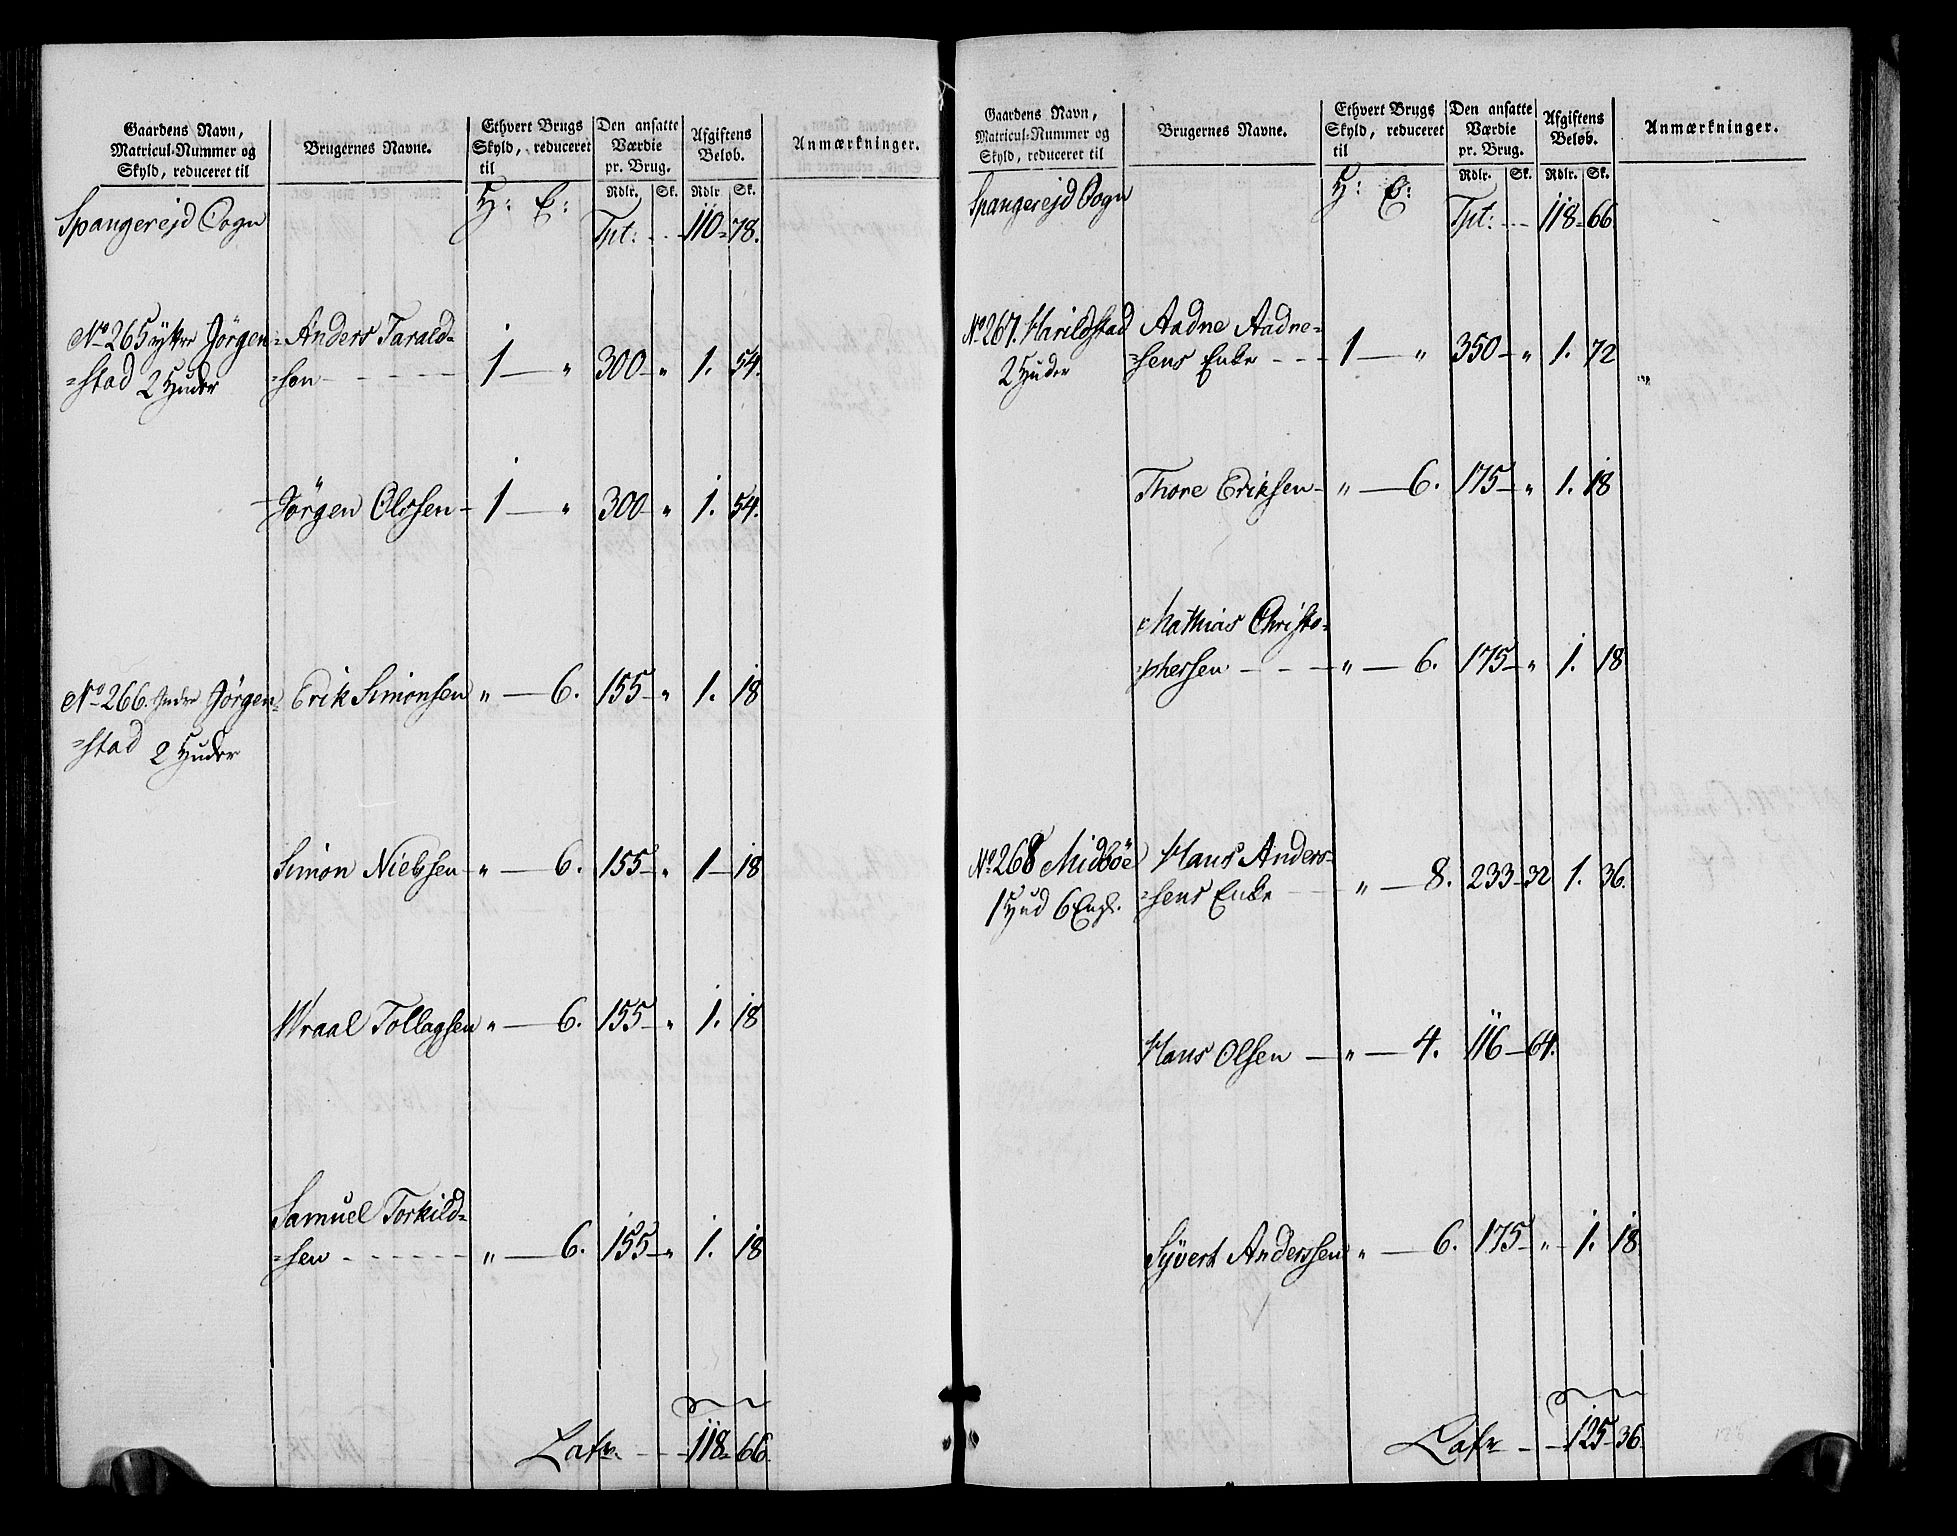 Gaardens Navn,
Matricul-Nummer og
Skyld, reduceret til
Brugernes Navne.
Ethvert Brugs
Skyld, reduceret
til
Den ansatte
Værdie
pr. Brug.
Afgiftens
Beløb.
Anmærkninger.
Rdlr. Sk. Rdlr. Sk.
Spangerejd Sogn H: E: Tpt: 110 78.
No 265 ytter Jørgen= Anders Tarald=
=stad 2 Huder =sen 1 — " 300 — " 1. 54.
Jørgen Olssen 1 — " 300 — " 1. 54.
No 266. Indre Jørgen= Erik Simonsen " — 6. 155 — " 1. 18
=stad 2 Huder
Simon Nielssen " — 6. 155 — " 1 — 18
Wraal Tollagsen " — 6. 155 — " 1. 18
Samuel Torkild=
=sen " — 6. 155 — " 1. 18
Lafr 118 66.
Gaardens Navn,
Matricul-Nummer og
Skyld, reduceret til
Brugernes Navne.
Ethvert Brugs
Skyld, reduceret
til
Den ansatte
Værdie
pr. Brug.
Afgiftens
Beløb.
Anmærkninger.
Rdlr. Sk. Rdlr. Sk.
Spangerejd Sogn H: E: Tpt: 118 66.
No 267. Harildstad Aadne Aadne=
2 Huder =sens Enke 1 — " 350 — " 1. 72
Thore Eriksen " — 6. 175 — " 1. 18
Mathias Christo=
=phersen " — 6. 175 — " 1. 18
No 268 Midböe Hans Anders=
1 Hud 6 Engl. =sens Enke " — 8. 233 — 32 1. 36.
Hans Olsen " — 4. 116 — 64.
Syvert Anderssen " — 6. 175 — " 1. 18
Lafr 125 36.
128